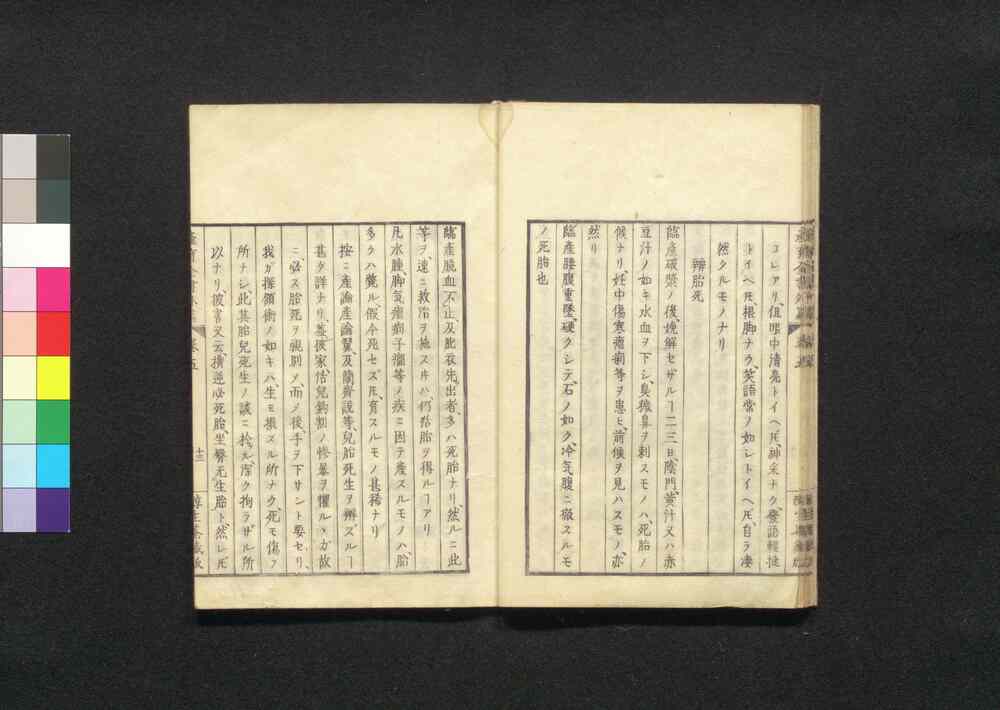 コレアリ、但眼中清亮トイヘ𪜈、神采ナク、發語輕捷
トイヘ𪜈、根脚ナク、笑語常ノ如シトイヘ𪜈、自ラ凄
然タルモノナリ
辨胎死
臨産破漿ノ後、娩解セザルヿ二三日、陰門黄汁又ハ赤
豆汁ノ如キ水血ヲ下シ、臭穢鼻ヲ刺スモノハ、死胎ノ
候ナリ、妊中傷寒瘧痢等ヲ患ヒ、前候ヲ見ハスモノ、亦
然リ
臨産腰腹重墜、硬クシテ石ノ如ク、冷気腹ニ徹スルモ
ノ死胎也
臨産脱血不止、及胞衣先出者、多ハ死胎ナリ、然ルニ此
等ヲ、速ニ救治ヲ施スキハ、仍活胎ヲ得ルヿアリ
凡水腫、脚気、癇、子癇等ノ疾ニ因テ産スルモノハ、胎
多クハ斃ル、假令死セズ𪜈、育スルモノ甚稀ナリ
按ニ産論、産論翼、及蘭齋説等、兒胎死生ヲ辨ズルヿ
甚タ詳ナリ、蓋彼家活兒鉤割ノ惨暴ヲ懼ルヽカ故
ニ、必ス胎死ヲ視別メ、而メ後、手ヲ下サント要セリ、
我ガ探頷術ノ如キハ、生モ損スル所ナク、死モ傷フ
所ナシ、此其胎兒死生ノ談ニ於ル、深ク拘ラザル所
以ナリ、彼書又云、横逆必死胎、坐臀无生胎ト、然レ𪜈
巻五
十三